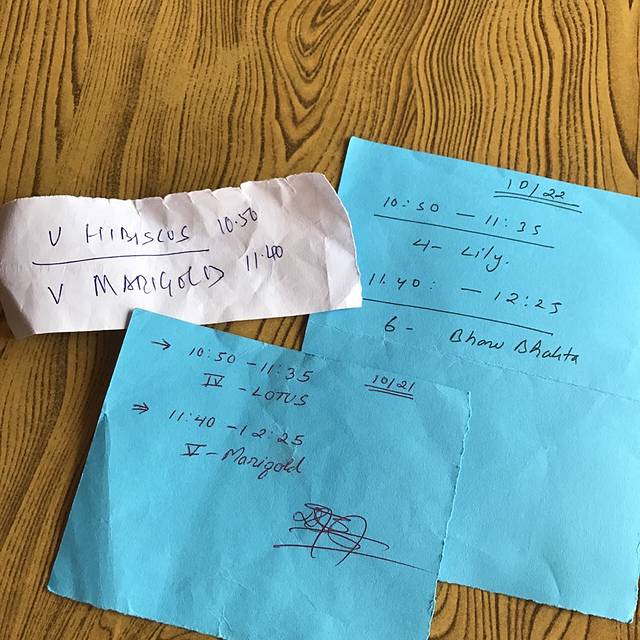 V HIBISCUS 10:50
V MARIGOLD 11:40
10/22
10:50 - 11:35
4 - Lily.
11.40: - 12:25
6 - Bhanu Bhakta
→ 10:50 - 11:35
10/21
IV - LOTUS
⇒ 11:40 - 12:25
V - Marigold